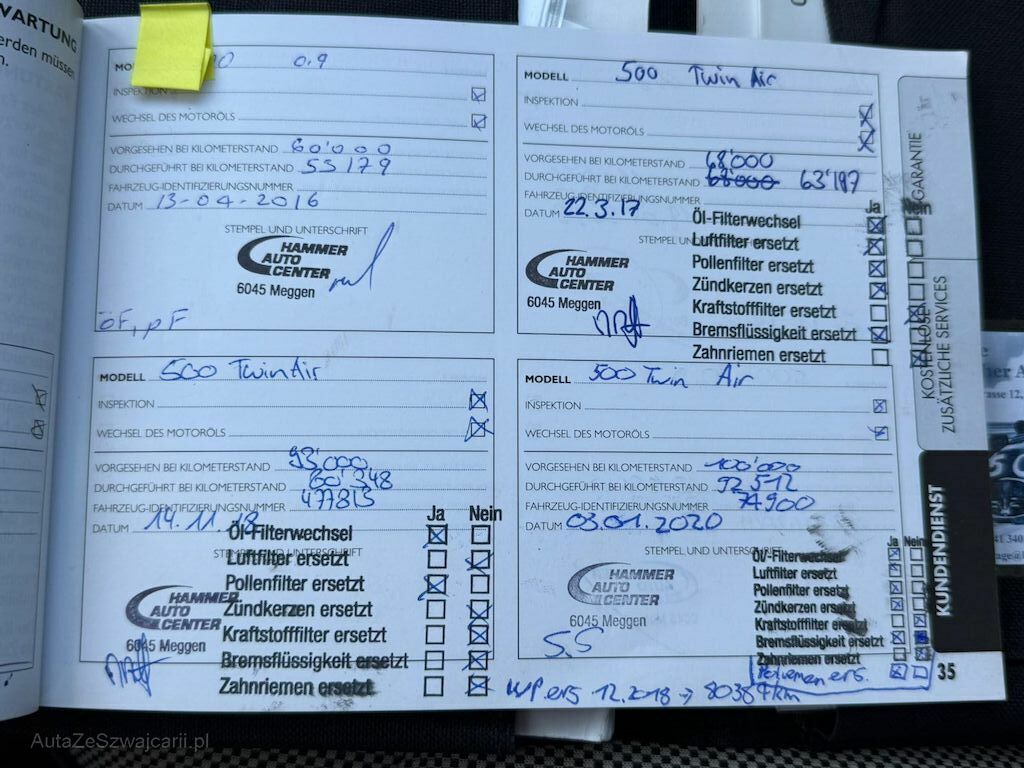 WARTUNG
erden müssen
n.
0.9
INSPEKTION
WECHSEL DES MOTORÖLS
VORGESEHEN BEI KILOMETERSTAND 60'000
DURCHGEFÜHRT BEI KILOMETERSTAND 55179
FAHRZEUG-IDENTIFIZIERUNGSNUMMER
DATUM 13-04-2016
STEMPEL UND UNTERSCHRIFT
HAMMER
AUTO
CENTER
6045 Meggen
ÖF, pF
MODELL 500 Twin Air
INSPEKTION
WECHSEL DES MOTORÖLS
VORGESEHEN BEI KILOMETERSTAND 68'000
DURCHGEFÜHRT BEI KILOMETERSTAND 68'000 63'187
FAHRZEUG-IDENTIFIZIERUNGSNUMMER
DATUM 22.3.17
Ja Nein
Öl-Filterwechsel
Luftfilter ersetzt
Pollenfilter ersetzt
Zündkerzen ersetzt
Kraftstofffilter ersetzt
Bremsflüssigkeit ersetzt
Zahnriemen ersetzt
HAMMER
AUTO
CENTER
6045 Meggen
MODELL 500 TwinAir
INSPEKTION
WECHSEL DES MOTORÖLS
VORGESEHEN BEI KILOMETERSTAND 93'000
DURCHGEFÜHRT BEI KILOMETERSTAND
FAHRZEUG-IDENTIFIZIERUNGSNUMMER 477813
DATUM 14.11.18
Ja Nein
Öl-Filterwechsel
STEMPEL UND UNTERSCHRIFT
Luftfilter ersetzt
Pollenfilter ersetzt
Zündkerzen ersetzt
Kraftstofffilter ersetzt
Bremsflüssigkeit ersetzt
Zahnriemen ersetzt
HAMMER
AUTO
CENTER
6045 Meggen
MODELL 500 Twin Air
INSPEKTION
WECHSEL DES MOTORÖLS
VORGESEHEN BEI KILOMETERSTAND 100'000
DURCHGEFÜHRT BEI KILOMETERSTAND 92512
FAHRZEUG-IDENTIFIZIERUNGSNUMMER 74900
DATUM 03.01.2020
STEMPEL UND UNTERSCHRIFT
Ja Nein
Öl-Filterwechsel
Luftfilter ersetzt
Pollenfilter ersetzt
Zündkerzen ersetzt
Kraftstofffilter ersetzt
Bremsflüssigkeit ersetzt
Zahnriemen ersetzt
HAMMER
AUTO
CENTER
6045 Meggen
S.S
WP ers 12.2018 → 80384km
GARANTIE
KOSTENLOSE
ZUSÄTZLICHE SERVICES
KUNDENDIENST
35
AutaZeSzwajcarii.pl